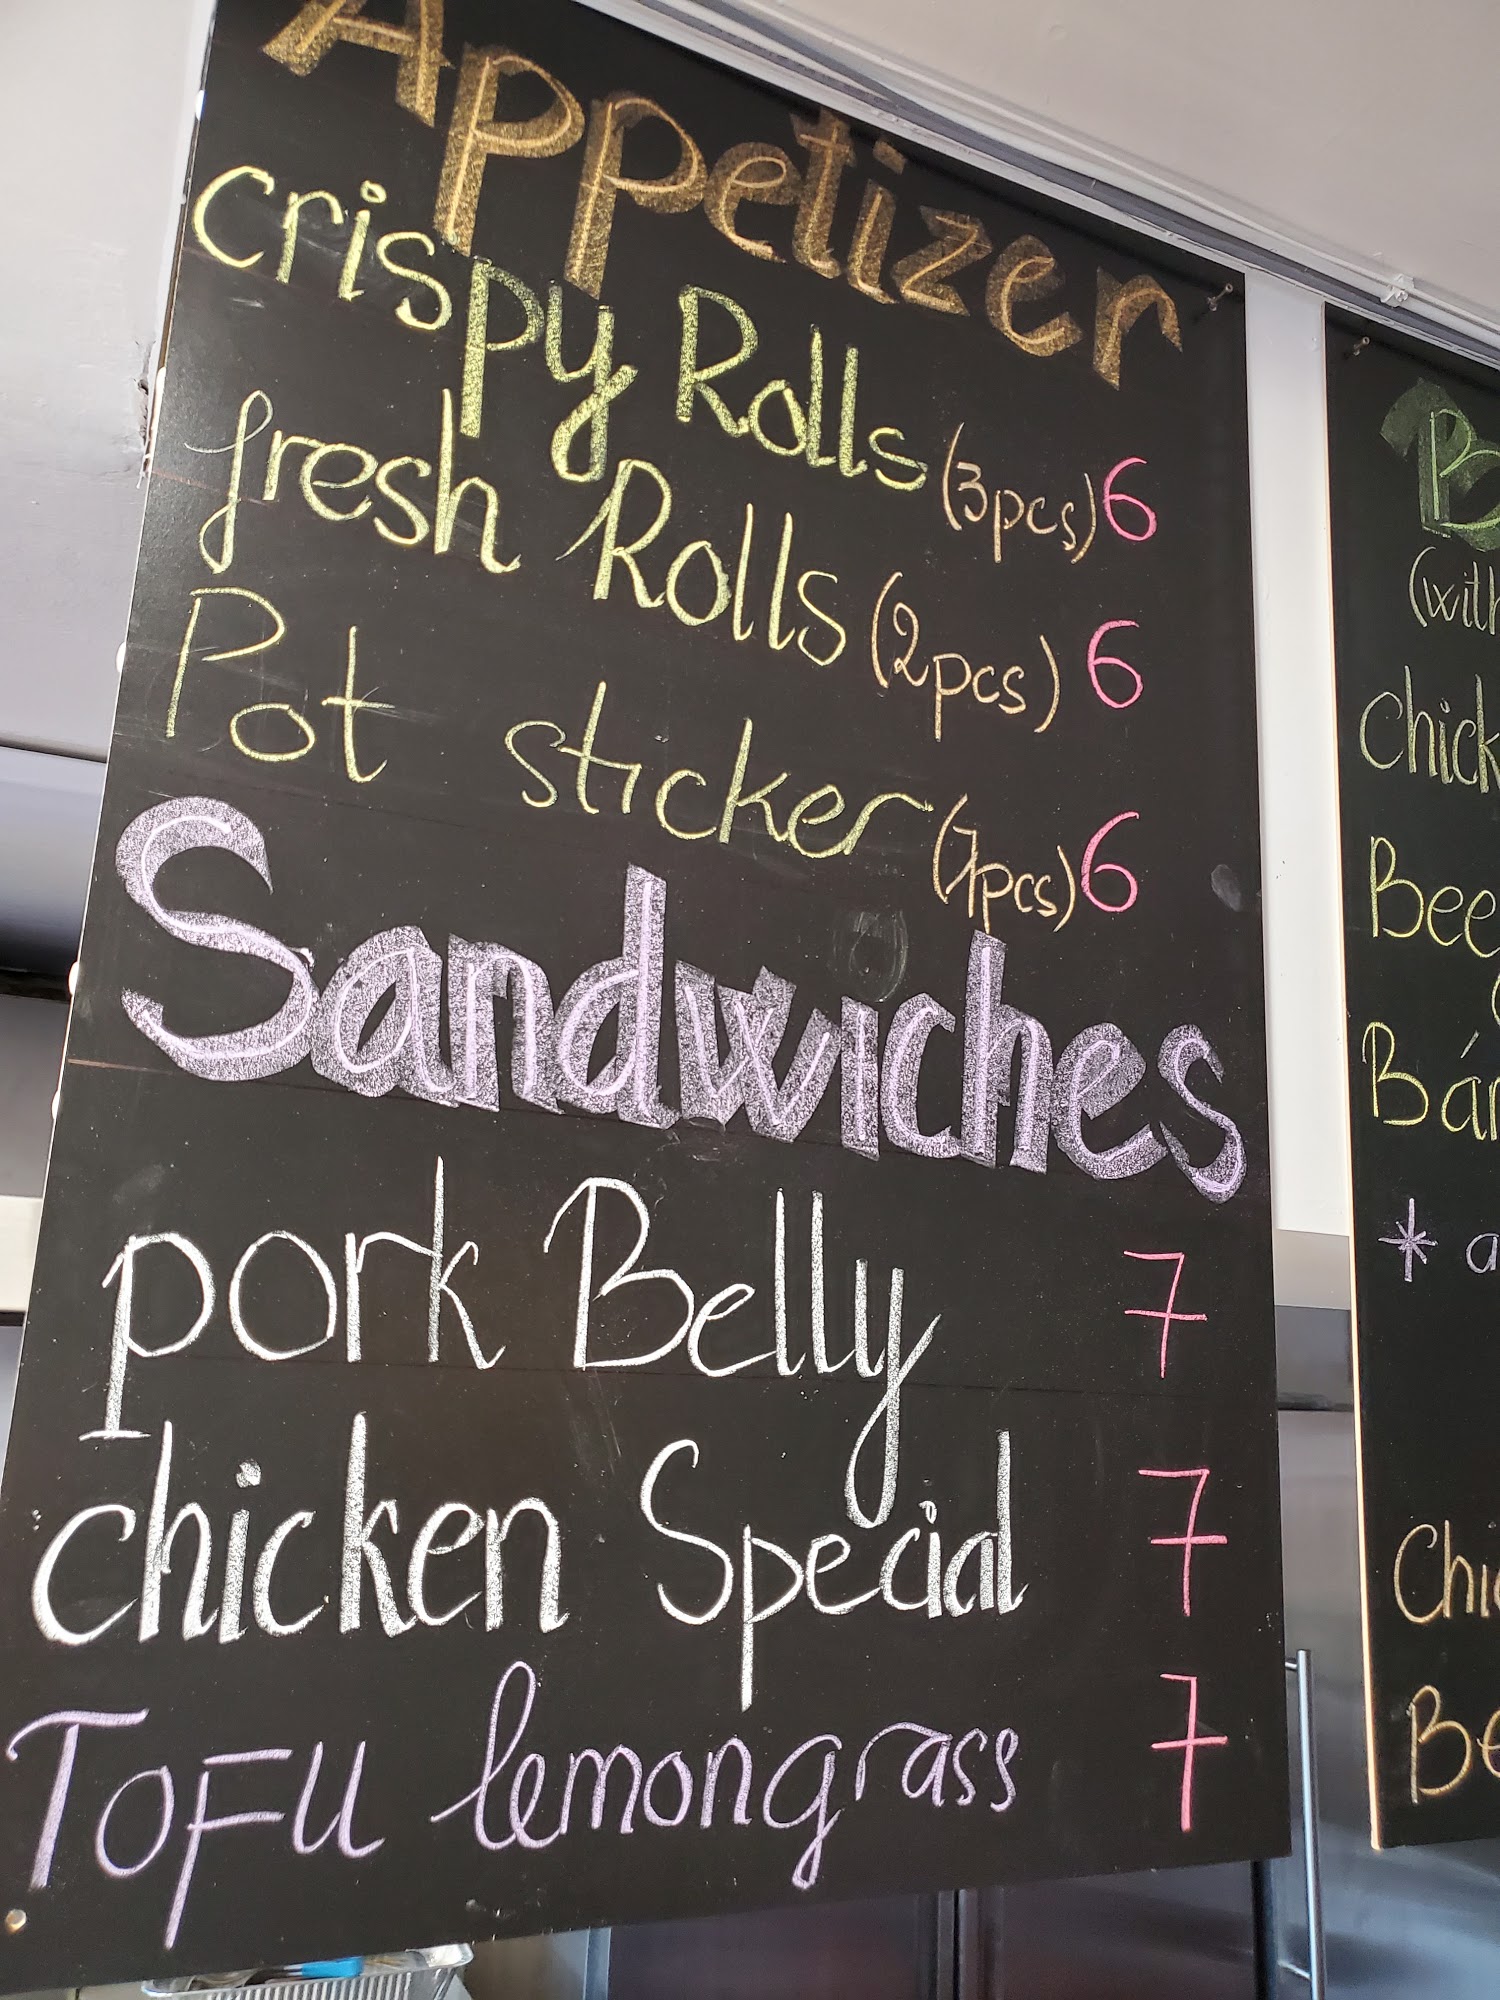 Appetizer
Crispy Rolls (3pcs) 6
fresh Rolls (2pcs) 6
Pot sticker (7pcs) 6
Sandwiches
pork Belly 7
chicken Special 7
TOFU lemongrass 7
B
(with
chick
Bee
Bán
* a
Chi
Be